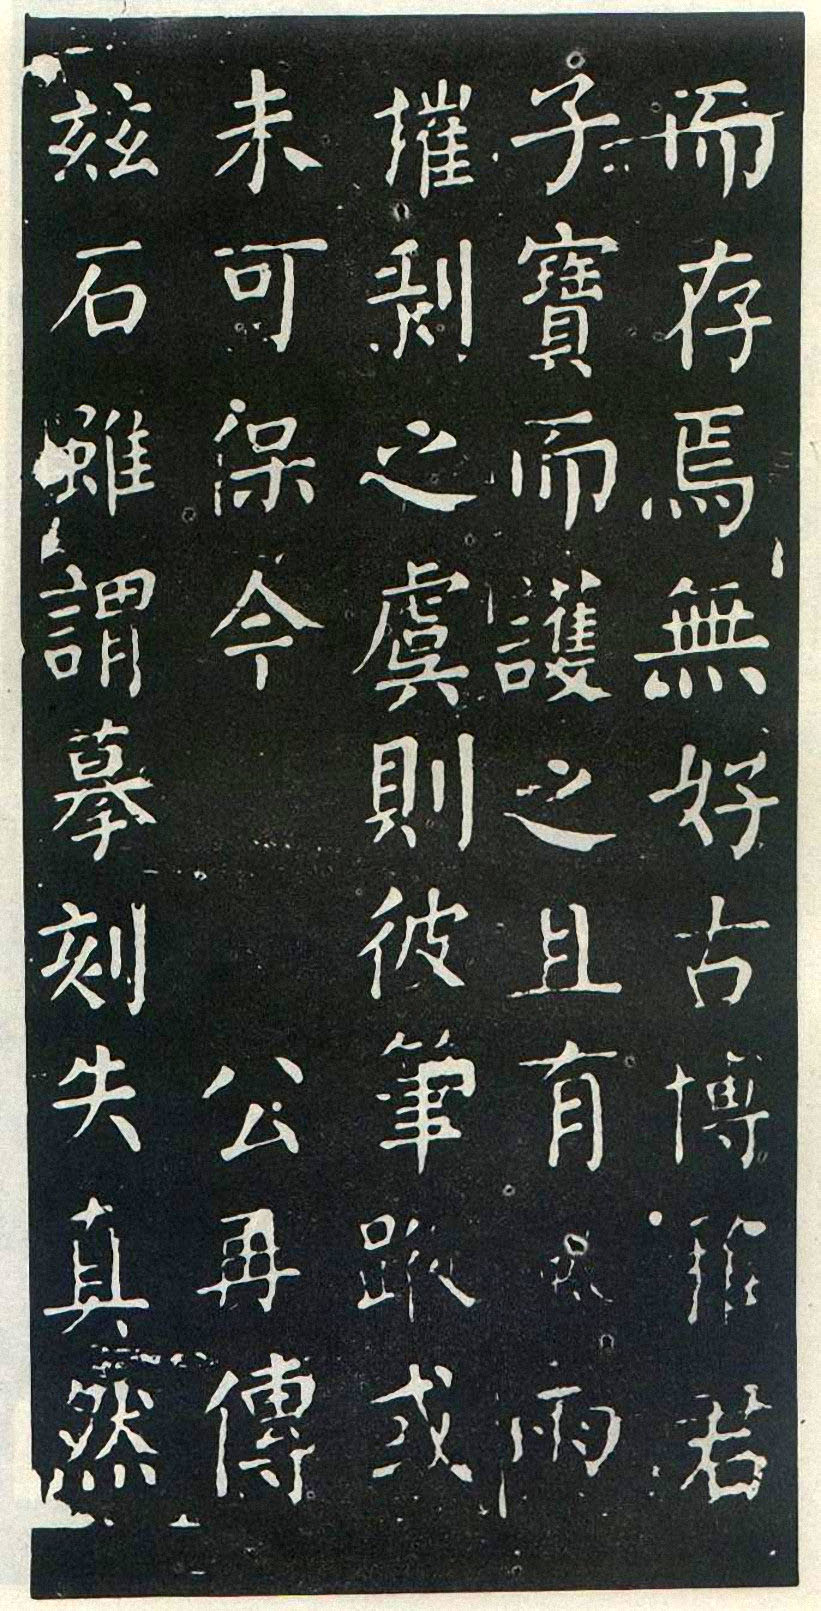 而存焉無好古博雅君
子寶而護之且有雨
摧剝之虞則彼筆蹤或
未可保今 公再傳
兹石雖謂摹刻失真然